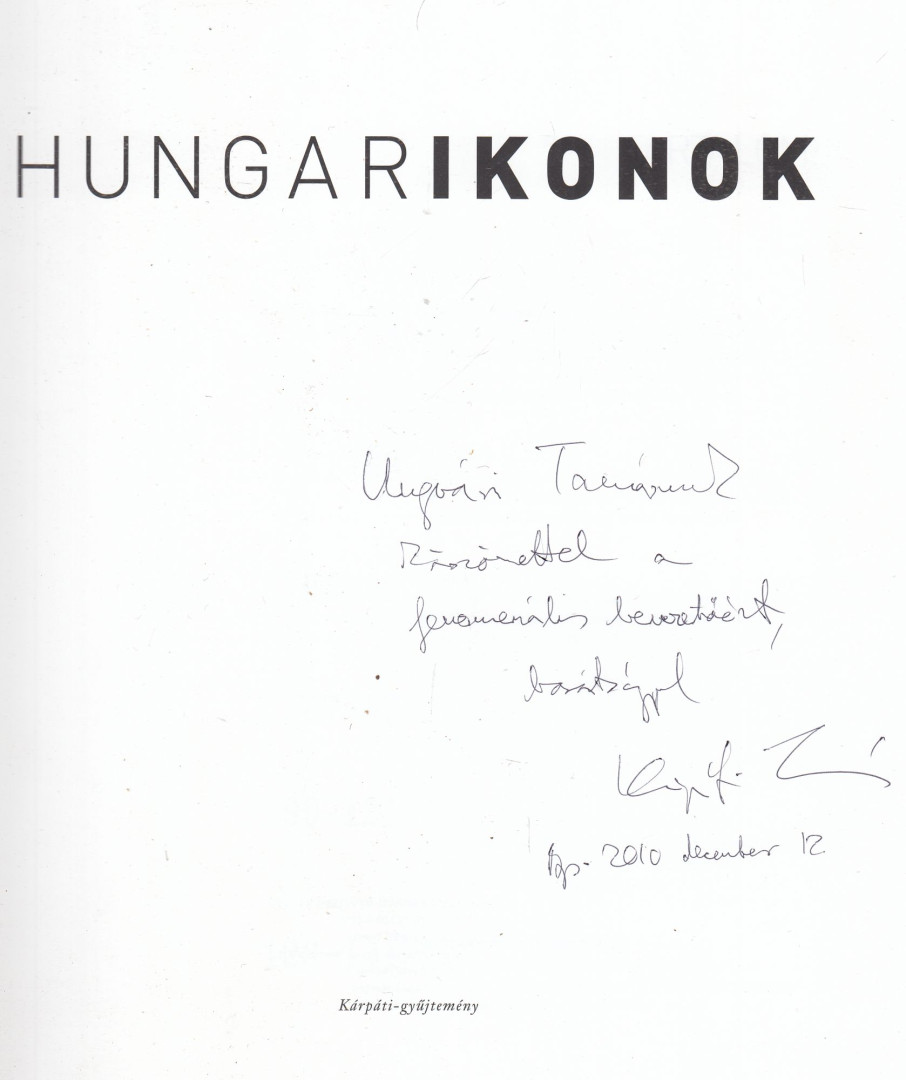 HUNGARIKONOK
Ungvári Tamásnak
Köszönettel a
fenomenális bevezetőért,
barátsággal
Kárpáti
Bp. 2010 december 12
Kárpáti-gyűjtemény